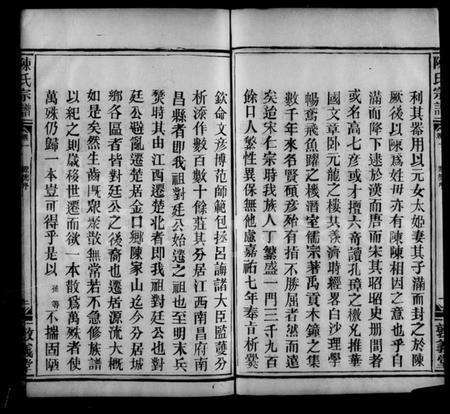 陳氏宗譜
利其器用以元女太姬妻其子滿而封之於陳
厥後以陳爲姓毋亦有陳陳相因之意也乎自
滿而降下逮於漢而唐而宋其昭昭史册間者
或名高七彥或才擅六奇讀孔璋之檄兄推華
國文章臥元龍之樓
暢鸢飛魚躍之樓潛室儒宗著禹貢木鐘之集
數千年來名賢碩彥殆有指不勝屈者然而遠
矣迨宋仁宗時我族人丁繁盛一門三千九百
餘口人繁性異保無他慮嘉祐七年奉言析爨
欽命文彥博范師範包拯呂誨諸大臣監護分
析添作數百數十餘莊其分居江西南昌府南
昌縣者即我祖對廷公始遷之祖也至明末兵
燹時其由江西遷楚北者即我祖對廷公也對
廷公避亂遷楚居金口鄉陳家山迄今分居城
鄉各區者皆對廷公之後裔也遷居源流大概
如是矣然生齒既眾眾散無常若不急修族譜
以紀之則歲移世遷而欲一本散爲萬殊者使
萬殊仍歸一本豈可得乎是以 等不揣固陋
敦義堂
陳氏宗譜
敦義堂